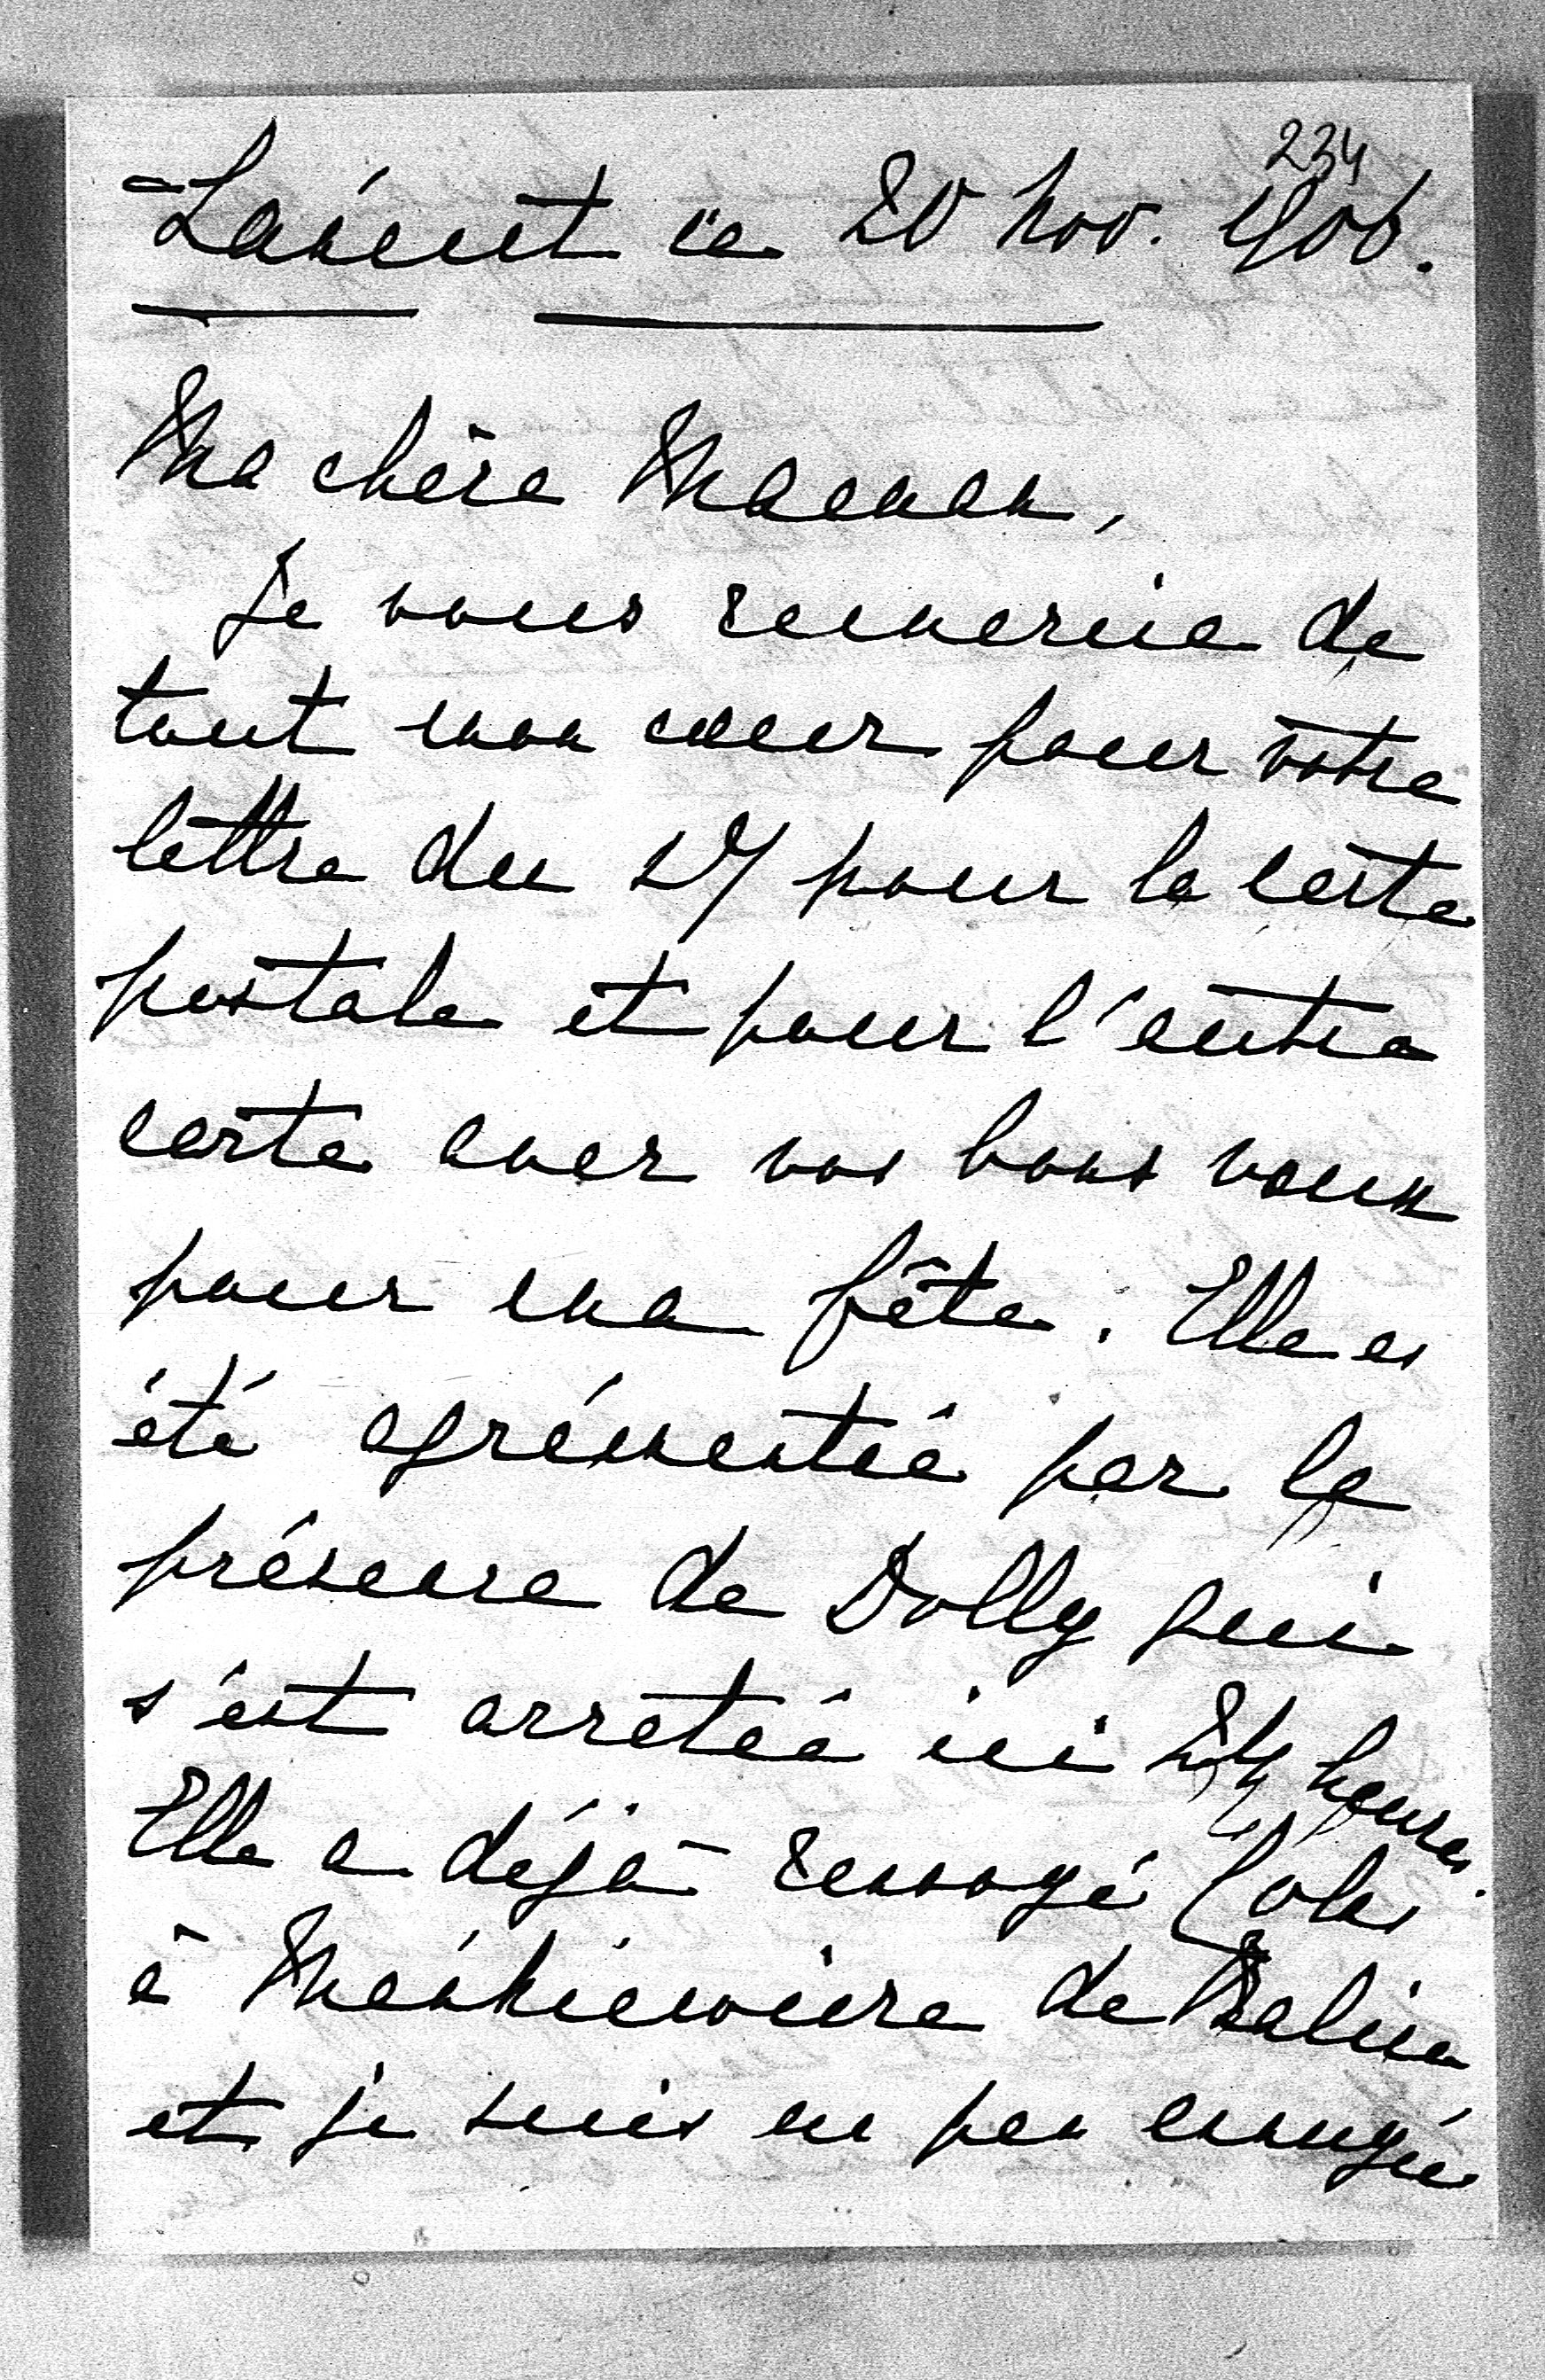 234
Łańcut ce 20 Nov. 1906.
Ma chère Maman,
Je vous remercie de
tout mon cœur pour votre
lettre du 17 pour la carte
postale et pour l'autre
carte avec vos bons vœux
pour ma fête. Elle a
été agrémentée par la
présence de Dolly qui
s'est arretée ici 24 heures.
Elle a déjà renvoyé
à de
et je suis un peu ennuyée